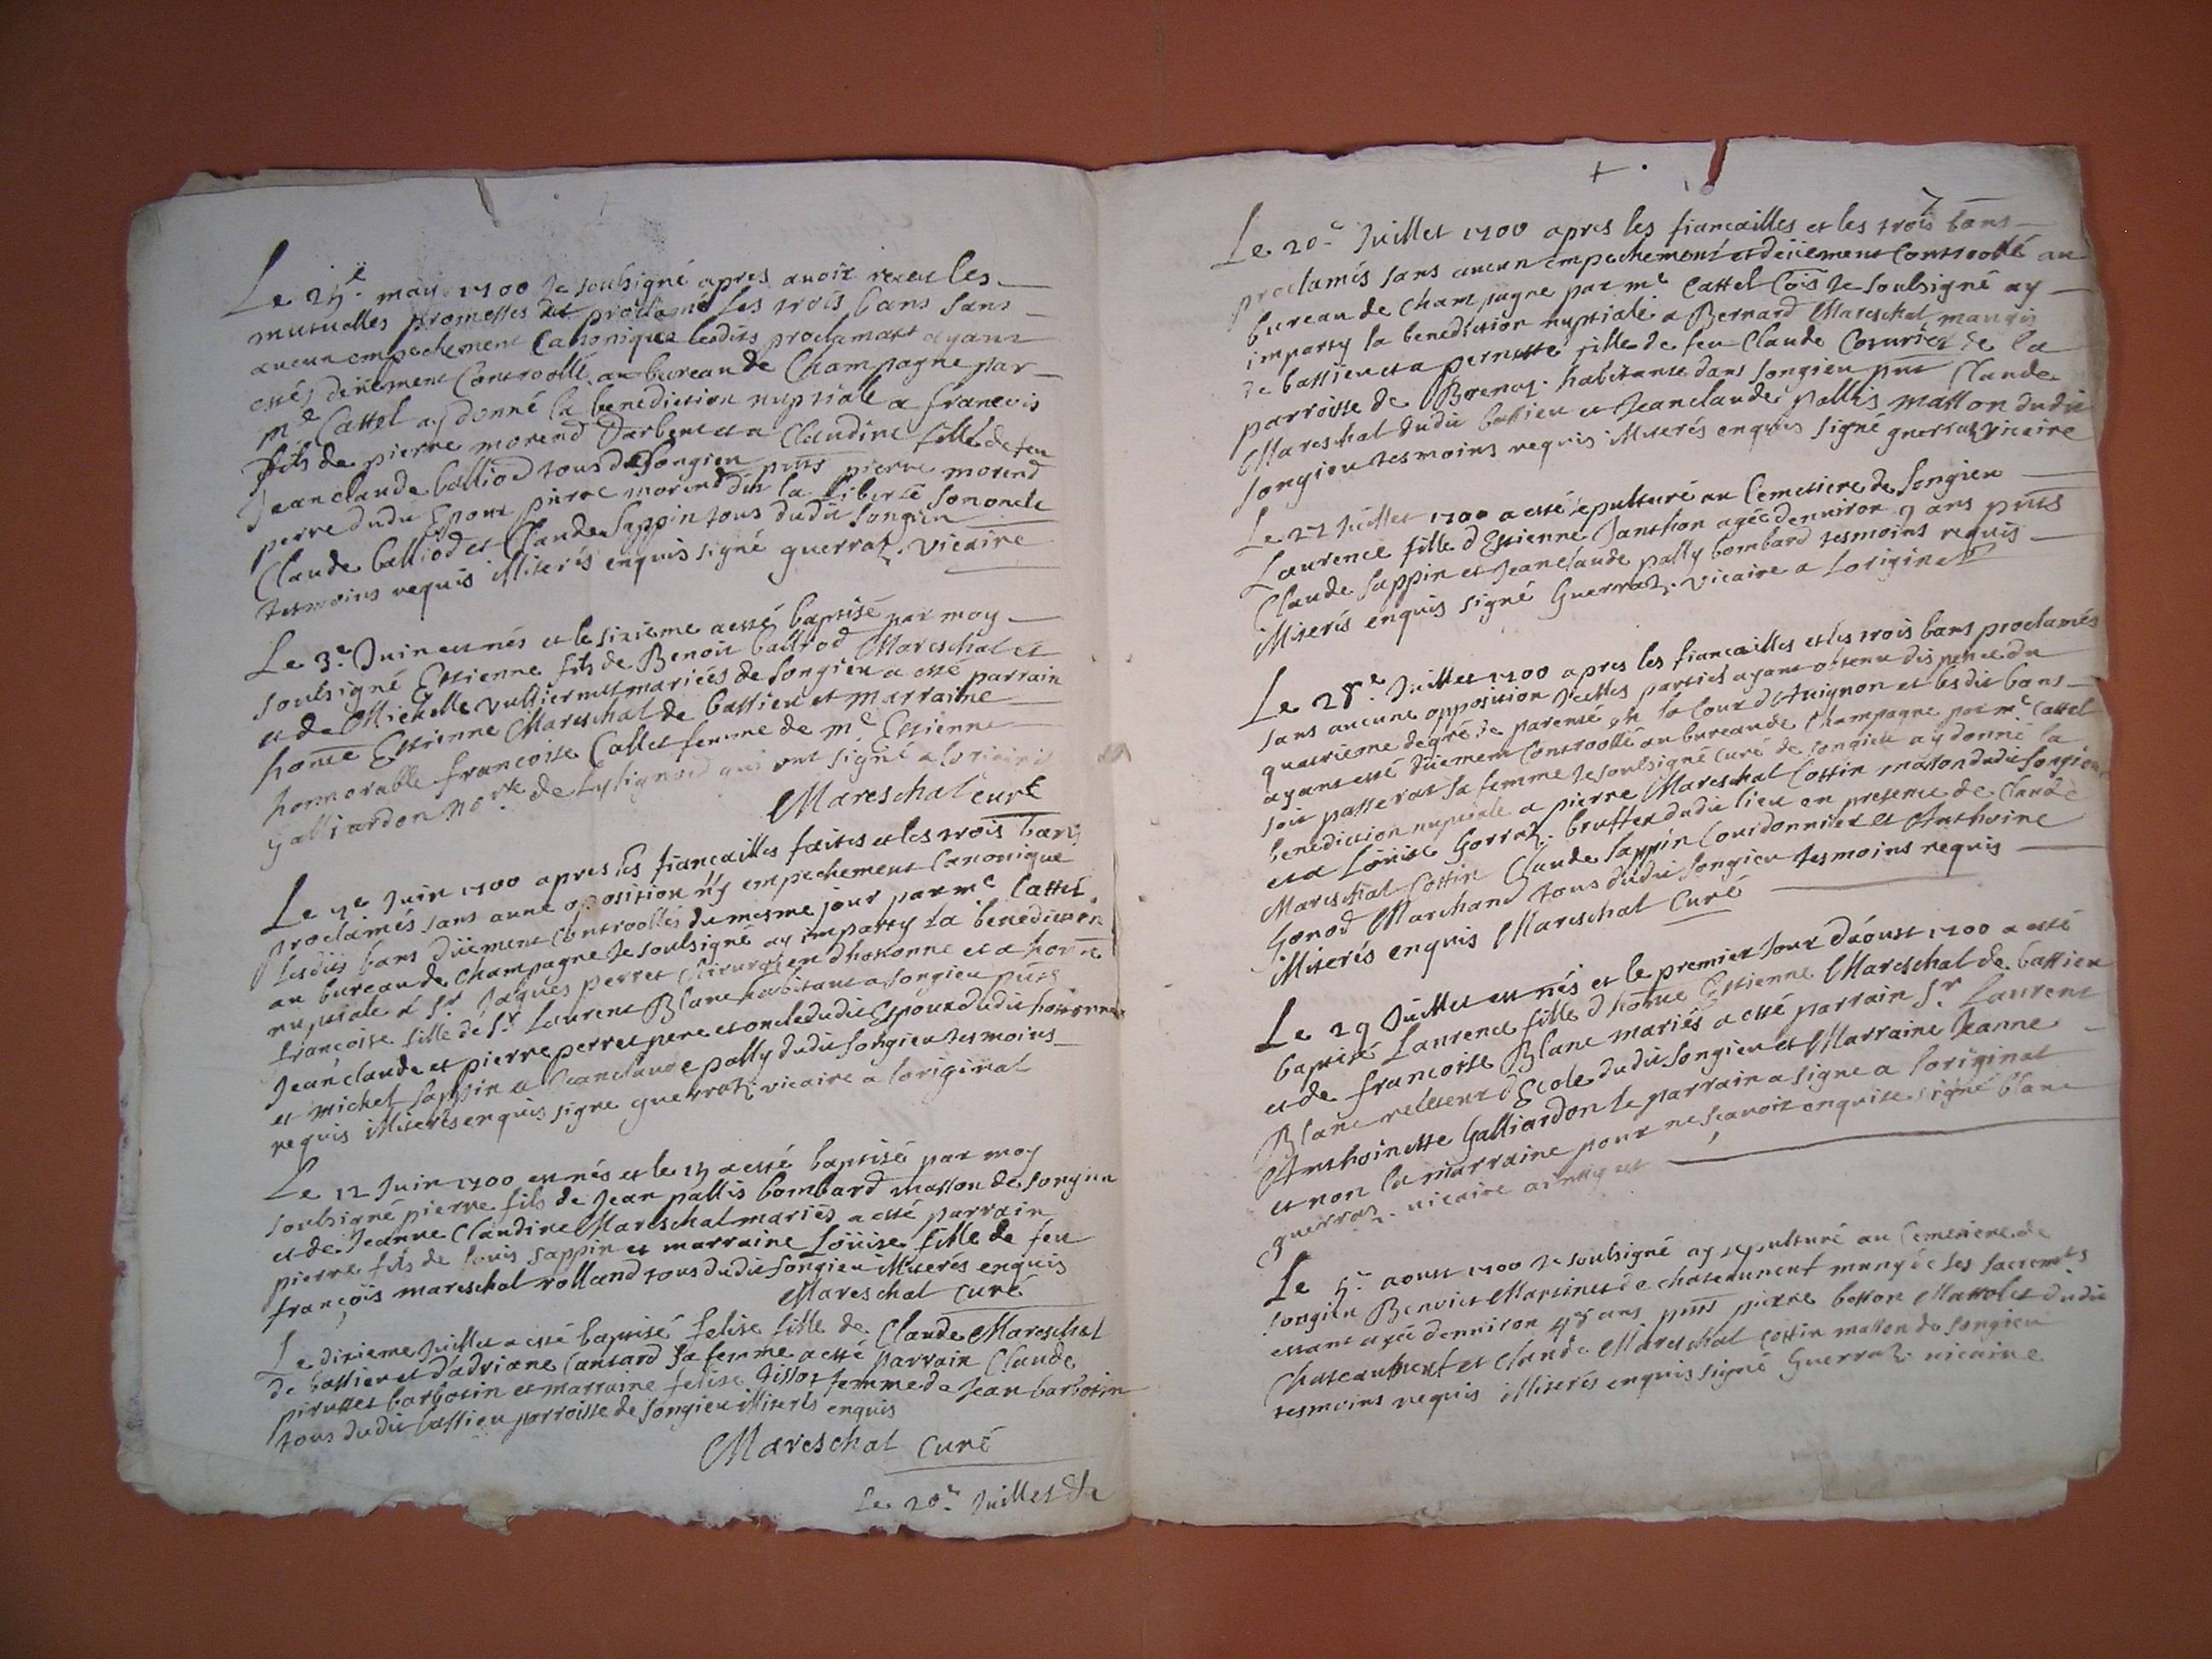 Le 25e may 1700 Je soubsigné apres auoir receu les
mutuelles promesses et proclamé les trois bans sans
aucun empechement Canonique lesdits proclamats ayant
estés deüement Controollé au bureau de Champagne par
me Cattel ay donné la benediction nuptiale a francois
fils de pierre morend et a Claudine fille de feu
Jean claude balliod tous de Songieu pnts pierre morend
perre dudit Epoux pierre morend dit la liberté son oncle
Claude balliod et Claude Sappin tous dudit Songieu
tesmoins requis Illiterés enquis signé guerraz. vicaire
Le 3e Juin est nés et le sixieme a esté baptisé par moy
soubsigné Estienne fils de Benoit balliod Mareschal et
et de Michelle vulliermet mariées de Songieu a esté parrain
home Estienne Mareschal de bassieu et marraine
honnorable francoise Callet femme de me Estienne
Galliardon nore de qui ont signé a loriginal
Mareschal curé
Le 7e Juin 1700 apres les fiançailles faites et les trois bans
proclamés sans aune oposition n'y empechement Canonique
lesdits bans düement Controollés du mesme jour par me Cattel
au bureau de Champagne Je soubsigné ay imparty la benediction
nuptiale a Sr Jaques perret chirurgien dhotonne et a hone
francoise fille de Sr Laurent Blanc habitant a Songieu pnts
Jean claude et pierre perret pere et oncle dudit Espoux dudit hotonne
et michel Sappin et Jeanclaude pally dudit Songieu tesmoins
requis Illiterés enquis signe guerraz. vicaire a loriginal
Le 12 Juin 1700 est nés et le 13 a esté baptisé par moy
soubsigné pierre fils de Jean pallis bombard masson de Songieu
et de Jeanne Claudine Mareschal mariés a esté parrain
pierre fils de louis Sappin et marraine Loüise fille de feu
françois mareschal rolland tous dudit Songieu Illiterés enquis
Mareschal curé
Le dixieme Juillet a esté baptisé felise fille de Claude Mareschal
de bassieu et d'adriane Cantard sa femme a esté parrain Claude
pirusset barbotin et marraine felise tissot femme de Jean barbotin
tous dudit bassieu parroisse de Songieu Illiterés enquis
Mareschal curé
Le 20e Juillet
7
Le 20e Juillet 1700 apres les fiancailles et les trois bans
proclamés sans aucun empechement et deüement Controollé au
bureau de Champagne par me Cattel Cois Je soubsigné ay
imparty la benediction nuptiale a Bernard Mareschal
de bassieu et a pernette fille de feu Claude de la
parroisse de Brenaz. habitante dans Songieu pnt Claude
Mareschal dudit bassieu et Jeanclaude pallis masson dudit
Songieu tesmoins requis Illiterés enquis signé guerraz vicaire
Le 27 Juillet 1700 a esté sepulturé au Cemetiere de Songieu
Laurence fille d'Estienne Janthon agée denuiron 7 ans pnts
Claude Sappin et Jeanclaude pally bombard tesmoins requis
Illiterés enquis signé Guerraz. vicaire a loriginal
Le 28e Juillet 1700 apres les fiancailles et les trois bans proclamés
sans aucune opposition Jcelles parties ayant obtenu dispence du
quatrieme degré de parenté en la Cour d'Auignon et lesdit bans
ayant esté düement Controollé au bureau de Champagne par me Cattel
soit passerat sa femme Je soubsigné curé de Songieu ay donné la
benediction nuptiale a pierre Mareschal Cottin masson dudit Songieu
et a Loüise Gorraz. dudit lieu en presence de Claude
Mareschal Cottin Claude Sappin Courdonnier et Anthoine
Gonod Marchand tous dudit Songieu tesmoins requis
Illiterés enquis Mareschal Curé
Le 29 Juillet est nés et le premier Jour d'aoust 1700 a esté
baptisé Laurence fille d home Estienne Mareschal de bassieu
et de francoise Blanc mariés a esté parrain Sr Laurent
Blanc recteur d'Ecole dudit Songieu et Marraine Jeanne
Anthoinette Galliardon le parrain a signe a loriginal
et non la marraine pour ne scauoir enquise signé blanc
guerraz. vicaire
Le 5e aoust 1700 Je soubsigné ay sepulturé au Cemetiere de
Songieu Benoiet Martinet de chateaunent munyé de ses sacremts
estant agée denuiron 48 ans pnts pierre besson dudit
et Claude Mareschal Cottin masson de Songieu
tesmoins requis Illiterés enquis signé Guerraz. vicaire